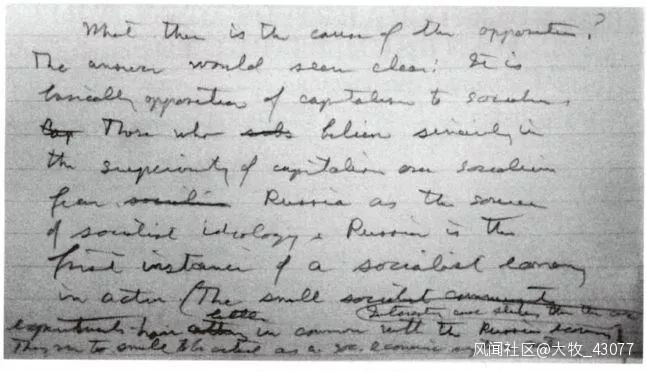 What then is the cause of the opposition?
The answer would seem clear: It is
basically opposition of capitalism to socialism.
Those who believe sincerely in
the superiority of capitalism over socialism
fear socialism Russia as the source
of socialist ideology. Russia is the
first instance of a socialist economy
in action (The small socialist community
little
experiments have in common with the Russian economy)
to small to as a
风闻社区@大牧_43077